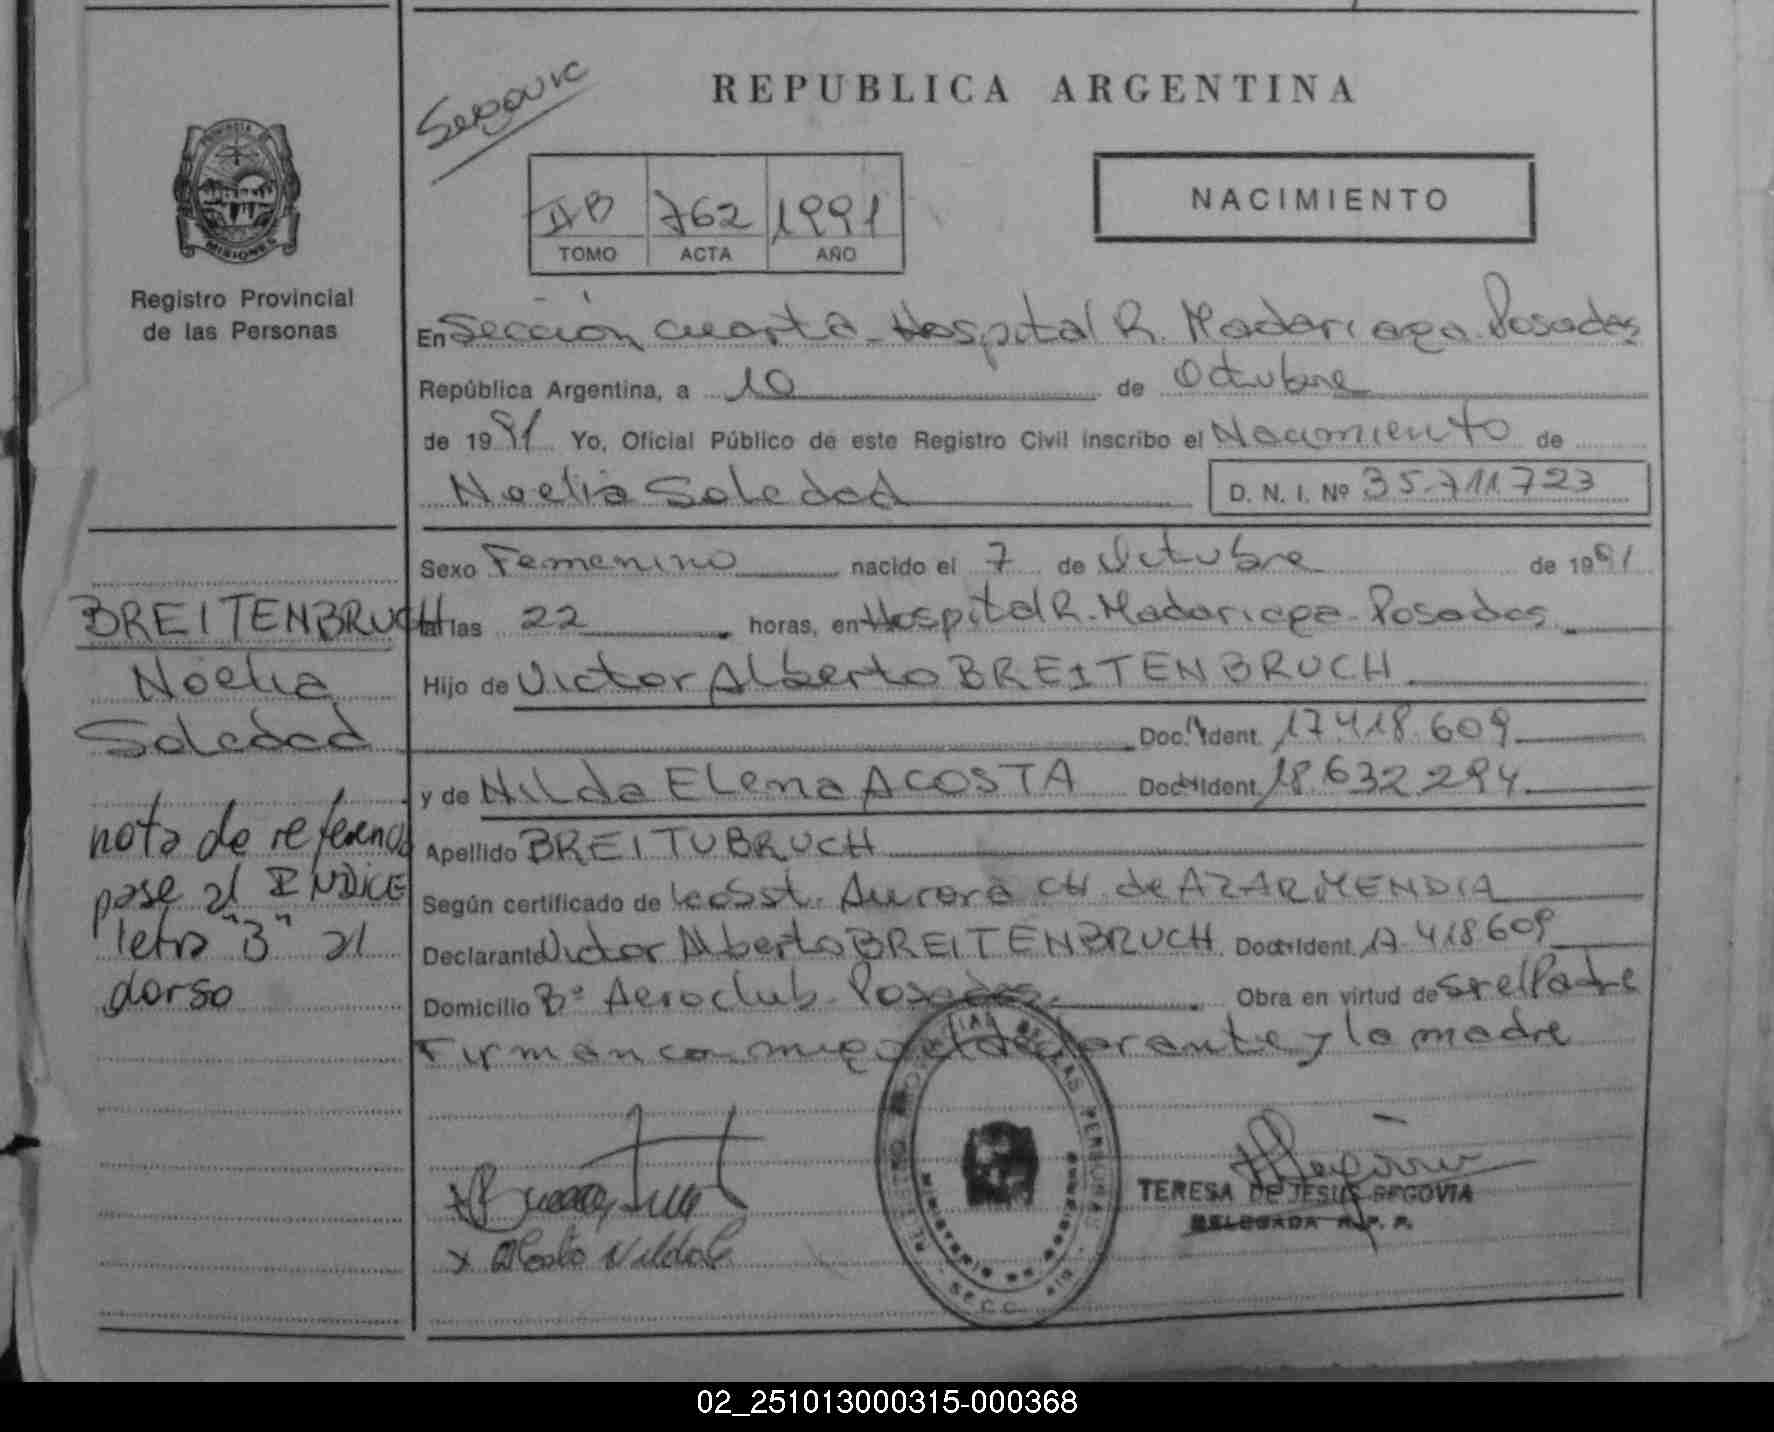 REPUBLICA ARGENTINA
NACIMIENTO
762 1991
TOMO ACTA AÑO
PROVINCIA DE
MISIONES
Registro Provincial
de las Personas
En Sección cuarta - Hospital R. Madariaga. Posadas
República Argentina, a 10 de Octubre
de 1991 Yo, Oficial Público de este Registro Civil inscribo el Nacimiento de
Noelia Soledad
D. N. I. Nº 35.711.723
Sexo Femenino nacido el 7 de Octubre de 1991
a las 22 horas, en Hospital R. Madariaga - Posadas
Hijo de Victor Alberto BREITENBRUCH
Doc. Ident. 17.418.609
y de Nilda Elena ACOSTA Doc. Ident. 18.632.294
Apellido BREITUBRUCH
Según certificado de la obst. Aurora CH. de AZARMENDIA
Declarante Victor Alberto BREITENBRUCH. Doc. Ident. 17.418609
Domicilio Bº Aeroclub - Posadas. Obra en virtud de ser el Padre
Firman conmigo el declarante y la madre
BREITENBRUCH
Noelia
Soledad
nota de referencia
pase al INDICE
letra "B" al
dorso
TERESA DE JESUS SEGOVIA
DELEGADA R. P. P.
02_251013000315-000368